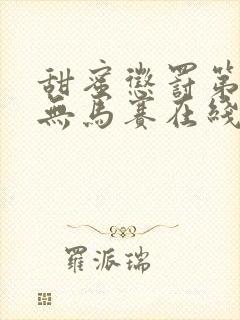 甜蜜懲罰第
無馬賽在綫
羅派瑞